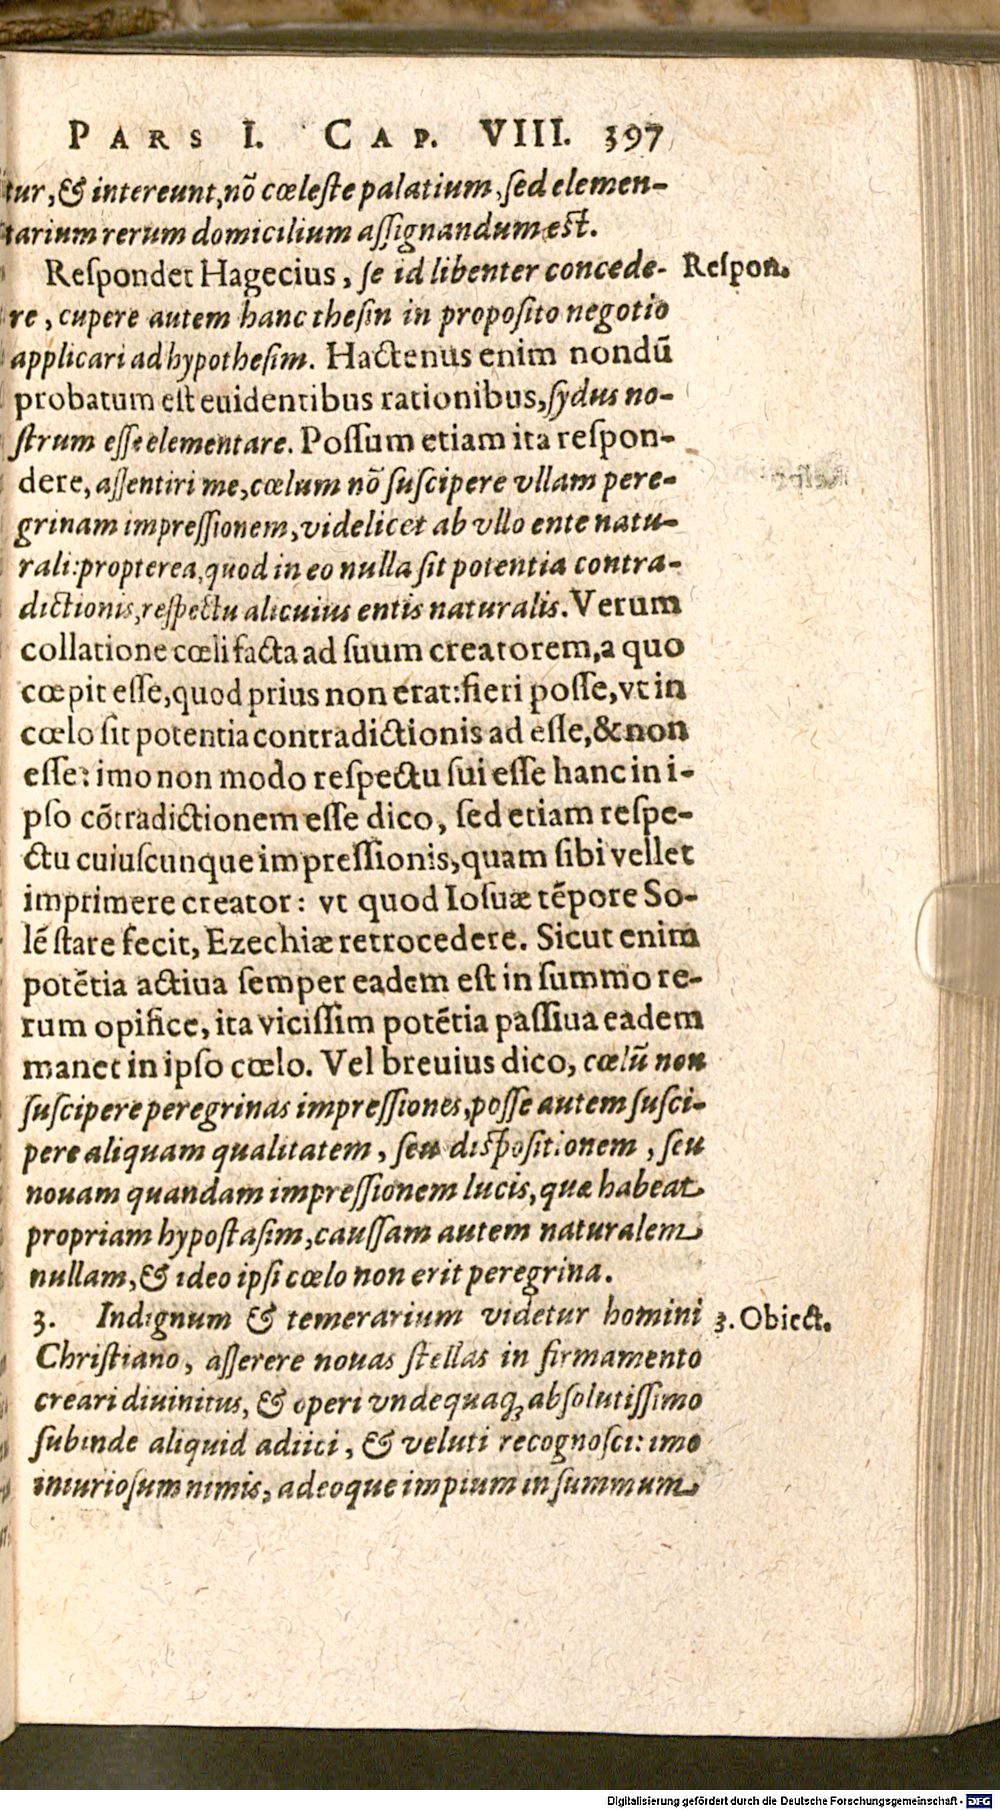 PARS I. CAP. VIII. 397
tur, & intereunt, nõ cœleſte palatium, ſed elemen-
tarium rerum domicilium aſſignandum eſt.
Reſpondet Hagecius, ſe id libenter concede- Reſpon.
re, cupere autem hanc theſin in propoſito negotio
applicari ad hypotheſim. Hactenus enim nondũ
probatum eſt euidentibus rationibus, ſydus no-
ſtrum eſſe elementare. Poſſum etiam ita reſpon-
dere, aſſentiri me, cœlum nõ ſuſcipere vllam pere-
grinam impreſſionem, videlicet ab vllo ente natu-
rali: propterea, quod in eo nulla ſit potentia contra-
dictionis, reſpectu alicuius entis naturalis. Verum
collatione cœli facta ad ſuum creatorem, a quo
cœpit eſſe, quod prius non erat: fieri poſſe, vt in
cœlo ſit potentia contradictionis ad eſſe, & non
eſſe: imo non modo reſpectu ſui eſſe hanc in i-
pſo cõtradictionem eſſe dico, ſed etiam reſpe-
ctu cuiuſcunque impreſſionis, quam ſibi vellet
imprimere creator: vt quod Ioſuæ tẽpore So-
lẽ ſtare fecit, Ezechiæ retrocedere. Sicut enim
potẽtia actiua ſemper eadem eſt in ſummo re-
rum opifice, ita viciſſim potẽtia paſſiua eadem
manet in ipſo cœlo. Vel breuius dico, cœlũ non
ſuſcipere peregrinas impreſſiones, poſſe autem ſuſci-
pere aliquam qualitatem, ſeu diſpoſitionem, ſeu
nouam quandam impreſſionem lucis, quæ habeat
propriam hypoſtaſim, cauſſam autem naturalem
nullam, & ideo ipſi cœlo non erit peregrina.
3. Indignum & temerarium videtur homini 3. Obiect.
Chriſtiano, aſſerere nouas ſtellas in firmamento
creari diuinitus, & operi vndequaq; abſolutiſſimo
ſubinde aliquid adiici, & veluti recognoſci: imo
iniurioſum nimis, adeoque impium in ſummum
Digitalisierung gefördert durch die Deutsche Forschungsgemeinschaft - DFG